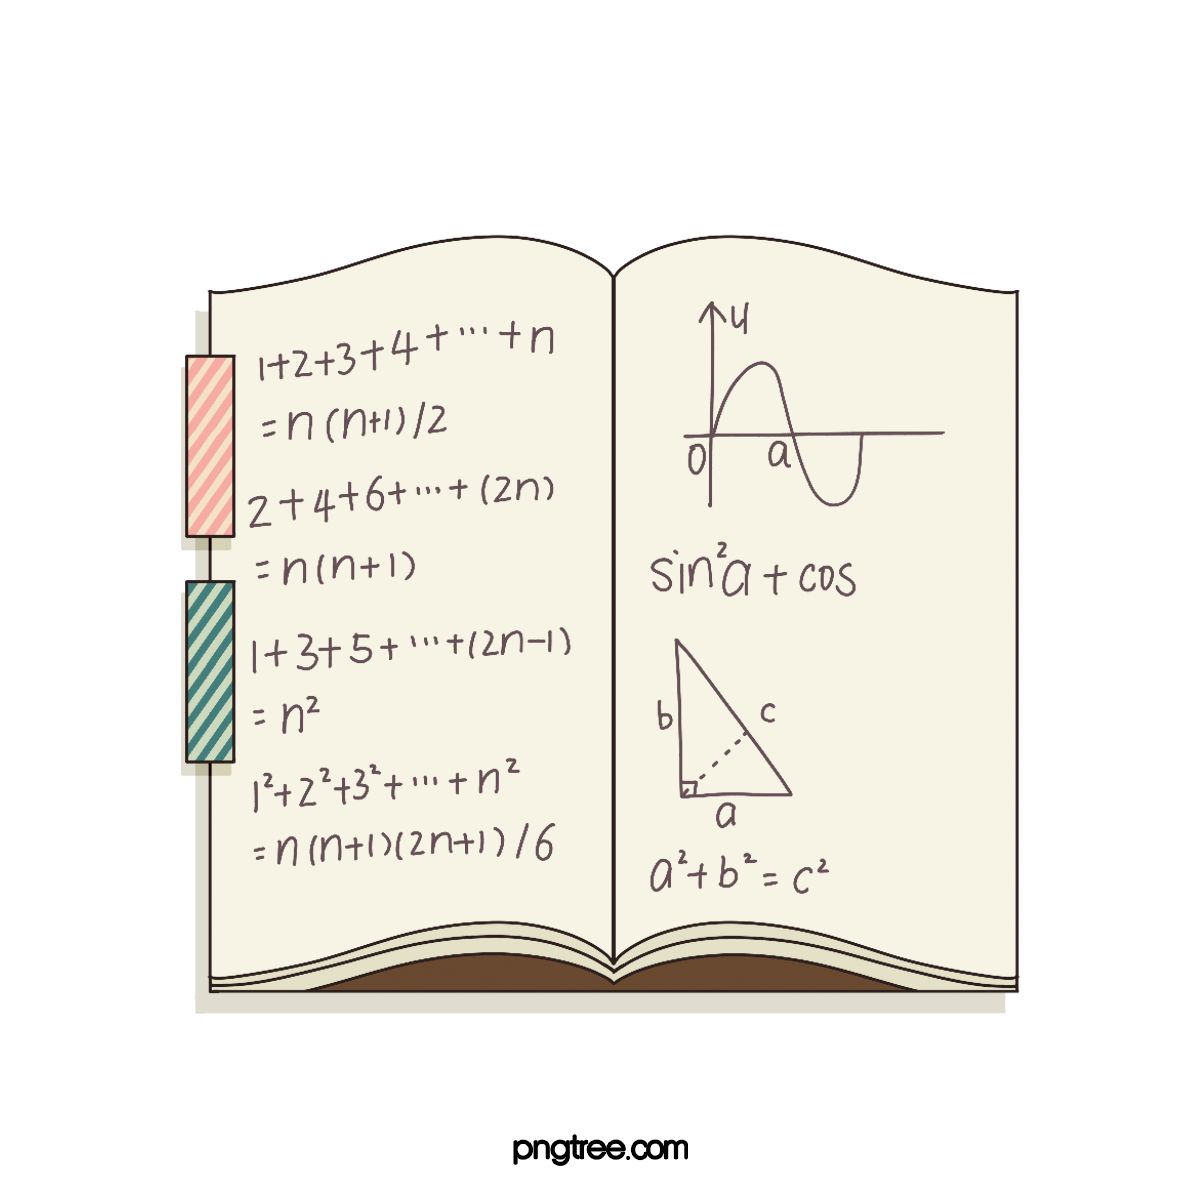 1+2+3+4+...+n
=n(n+1)/2
2+4+6+...+(2n)
=n(n+1)
1+3+5+...+(2n-1)
=n²
1²+2²+3²+...+n²
=n(n+1)(2n+1)/6
y
0 a
sin²a+cos
b c
a
a²+b²=c²
pngtree.com